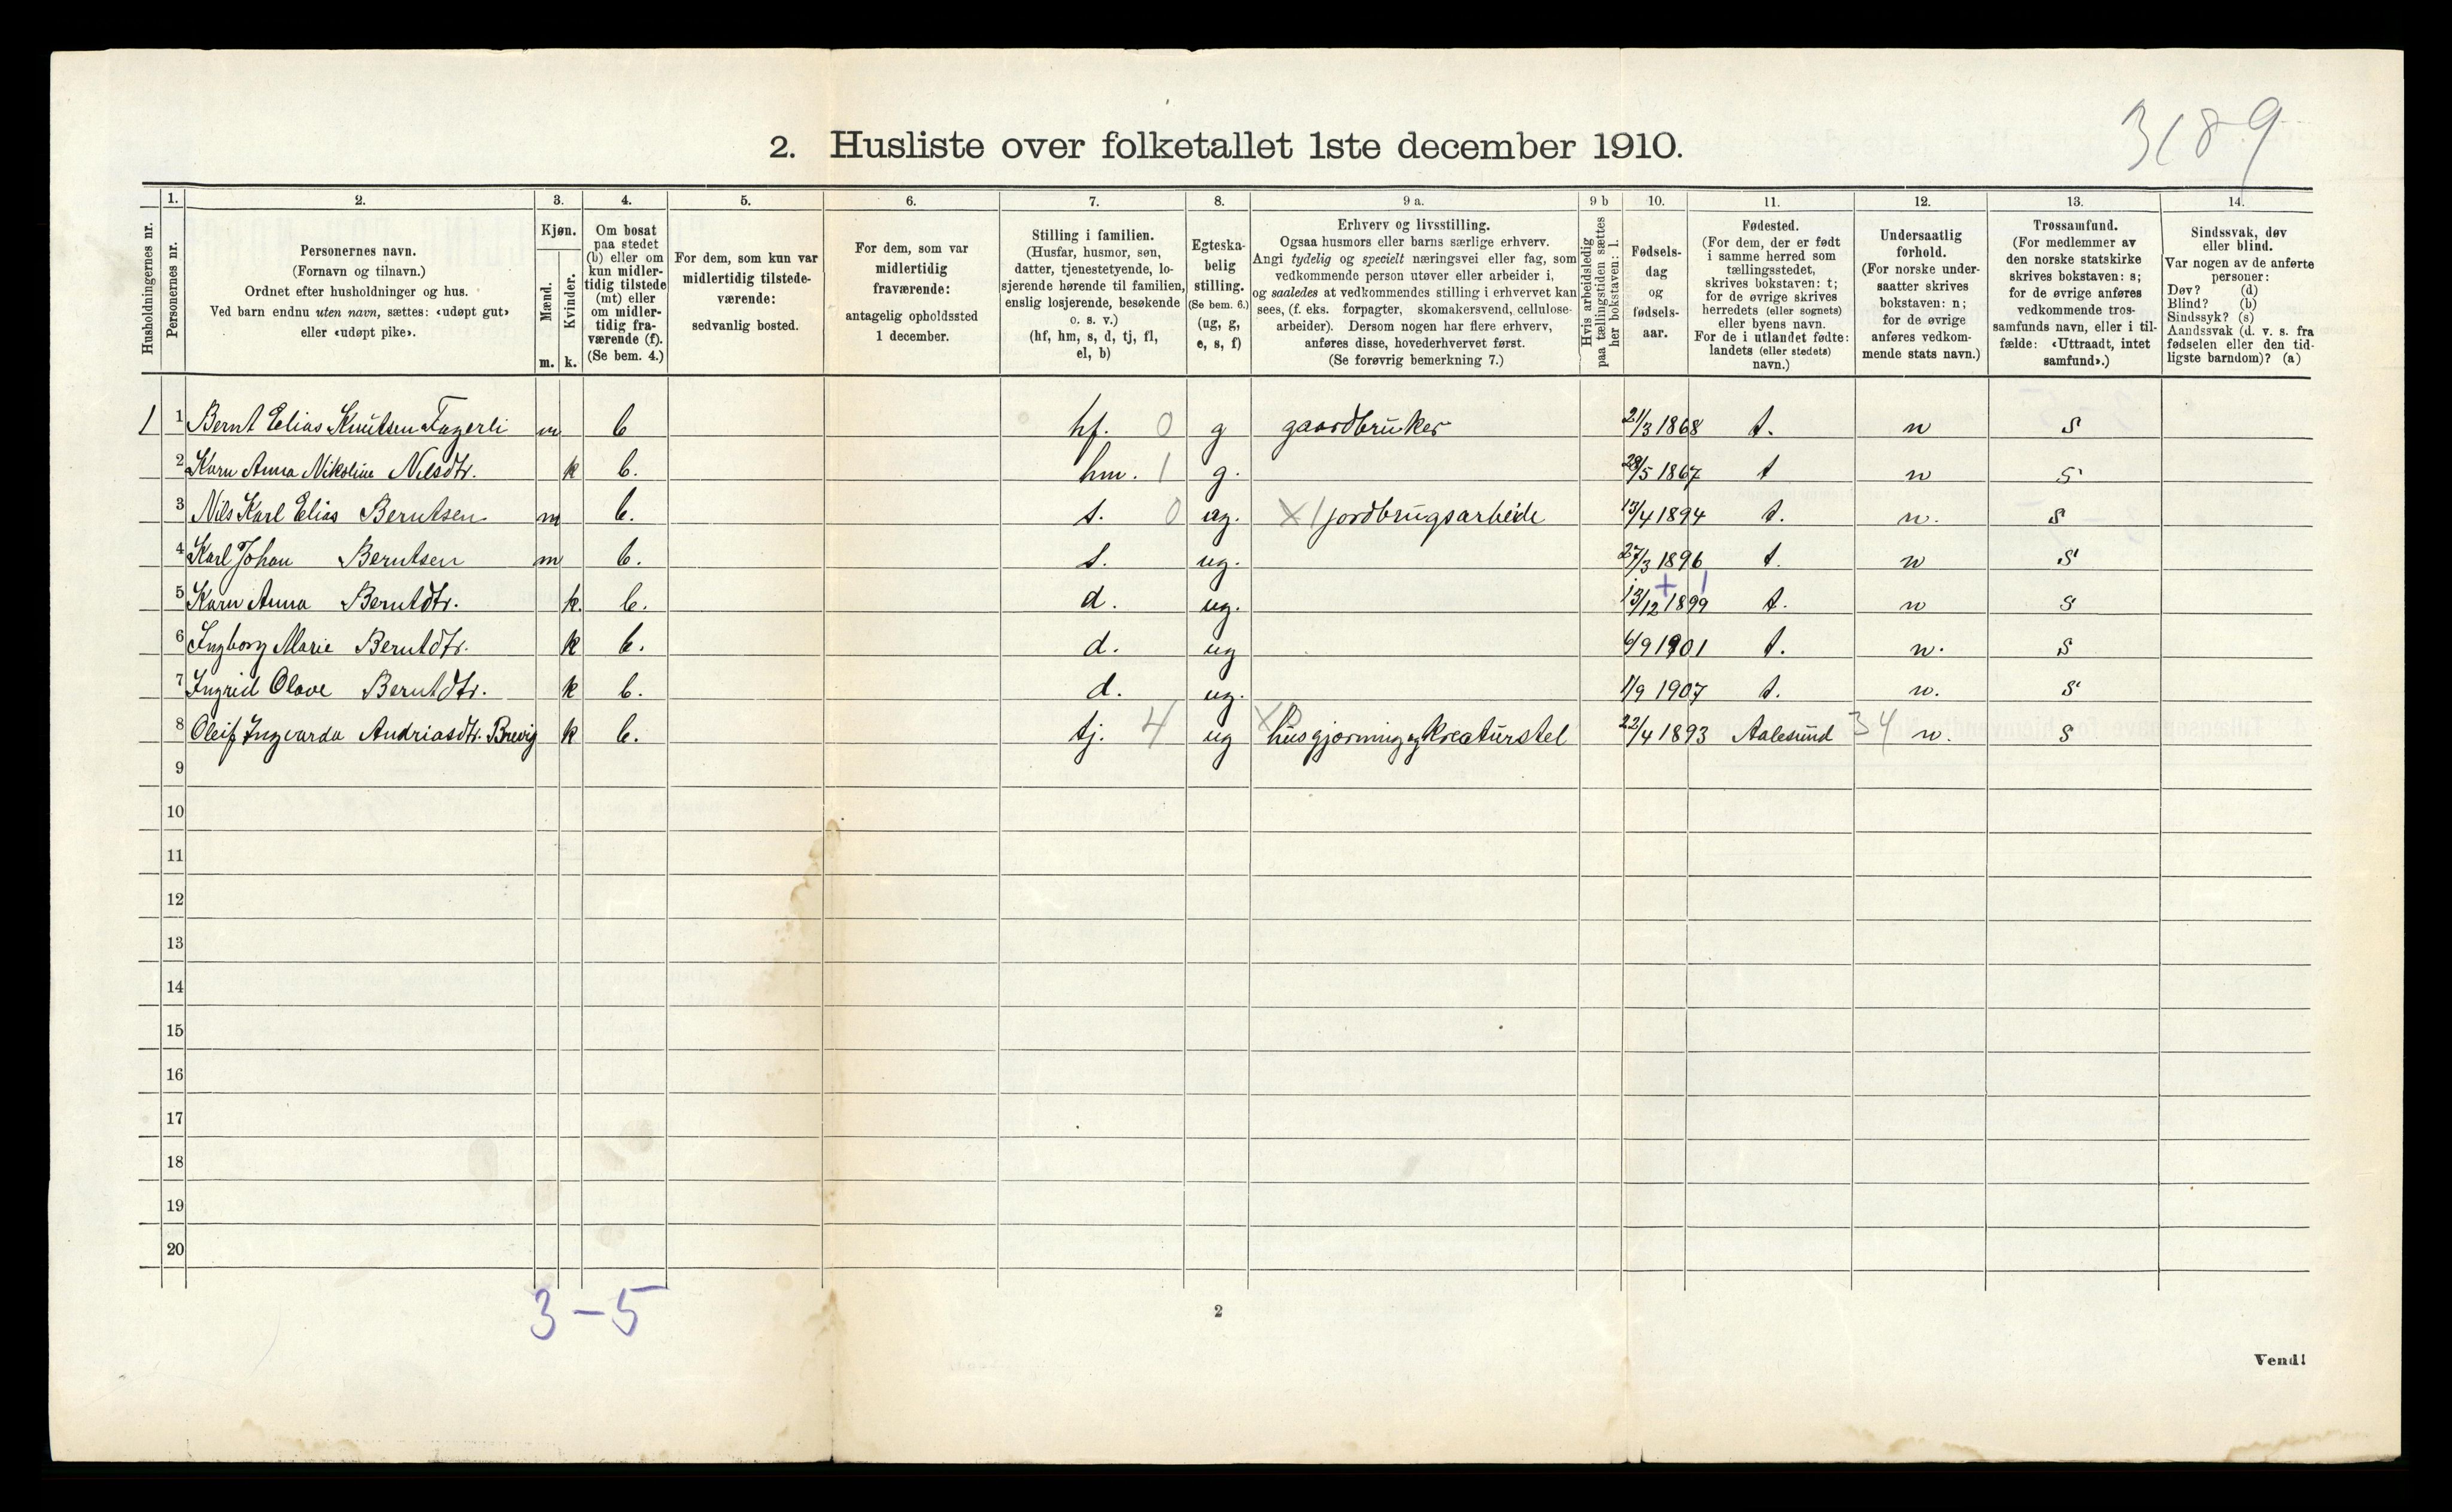 3189
2. Husliste over folketallet 1ste december 1910.
Husholdningernes nr.
1.
Personernes nr.
2.
Personernes navn.
(Fornavn og tilnavn.)
Ordnet efter husholdninger og hus.
Ved barn endnu uten navn, sættes: «udøpt gut»
eller «udøpt pike».
3.
Kjøn.
Mænd.
Kvinder.
m. k.
4.
Om bosat
paa stedet
(b) eller om
kun midler-
tidig tilstede
(mt) eller
om midler-
tidig fra-
værende (f).
(Se bem. 4.)
5.
For dem, som kun var
midlertidig tilstede-
værende:
sedvanlig bosted.
6.
For dem, som var
midlertidig
fraværende:
antagelig opholdssted
1 december.
7.
Stilling i familien.
(Husfar, husmor, søn,
datter, tjenestetyende, lo-
sjerende hørende til familien,
enslig losjerende, besøkende
o. s. v.)
(hf, hm, s, d, tj, fl,
el, b)
8.
Egteska-
belig
stilling.
(Se bem. 6.)
(ug, g,
e, s, f)
9 a.
Erhverv og livsstilling.
Ogsaa husmors eller barns særlige erhverv.
Angi tydelig og specielt næringsvei eller fag, som
vedkommende person utøver eller arbeider i,
og saaledes at vedkommendes stilling i erhvervet kan
sees, (f. eks. forpagter, skomakersvend, cellulose-
arbeider). Dersom nogen har flere erhverv,
anføres disse, hovederhvervet først.
(Se forøvrig bemerkning 7.)
9 b
Hvis arbeidsledig
paa tællingstiden sættes
her bokstaven: l.
10.
Fødsels-
dag
og
fødsels-
aar.
11.
Fødested.
(For dem, der er født
i samme herred som
tællingsstedet,
skrives bokstaven: t;
for de øvrige skrives
herredets (eller sognets)
eller byens navn.
For de i utlandet fødte:
landets (eller stedets)
navn.)
12.
Undersaatlig
forhold.
(For norske under-
saatter skrives
bokstaven: n;
for de øvrige
anføres vedkom-
mende stats navn.)
13.
Trossamfund.
(For medlemmer av
den norske statskirke
skrives bokstaven: s;
for de øvrige anføres
vedkommende tros-
samfunds navn, eller i til-
fælde: «Uttraadt, intet
samfund».)
14.
Sindssvak, døv
eller blind.
Var nogen av de anførte
personer:
Døv? (d)
Blind? (b)
Sindssyk? (s)
Aandssvak (d. v. s. fra
fødselen eller den tid-
ligste barndom)? (a)
1 1 Bernt Elias Knutsen Fagerli m b hf. 0 g gaardbruker 21/3 1868 t. n s
2 Karn Anna Nikoline Nilsdtr. k b. hm. 1 g. 28/5 1867 t n s
3 Nils Karl Elias Berntsen m b. s. 0 ug. X 1 jordbrugsarbeide 13/4 1894 t. n. s
4 Karl Johan Berntsen m b. s. ug. 27/3 1896 t. n s
5 Karn Anna Berntdtr. k. b. d. ug. 13/12 1899 t. n s
6 Ingborg Marie Berntdtr. k b. d. ug 6/9 1901 t. n. s
7 Ingrid Olave Berntdtr. k b. d. ug. 1/9 1907 t. n. s
8 Oleif Ingvarda Andriasdtr. Brevig k b. tj. 4 ug X husgjerning og kreaturstel 22/4 1893 Aalesund 34 n. s
9
10
11
12
13
14
15
16
17
18
19
20
3-5
2
Vend!